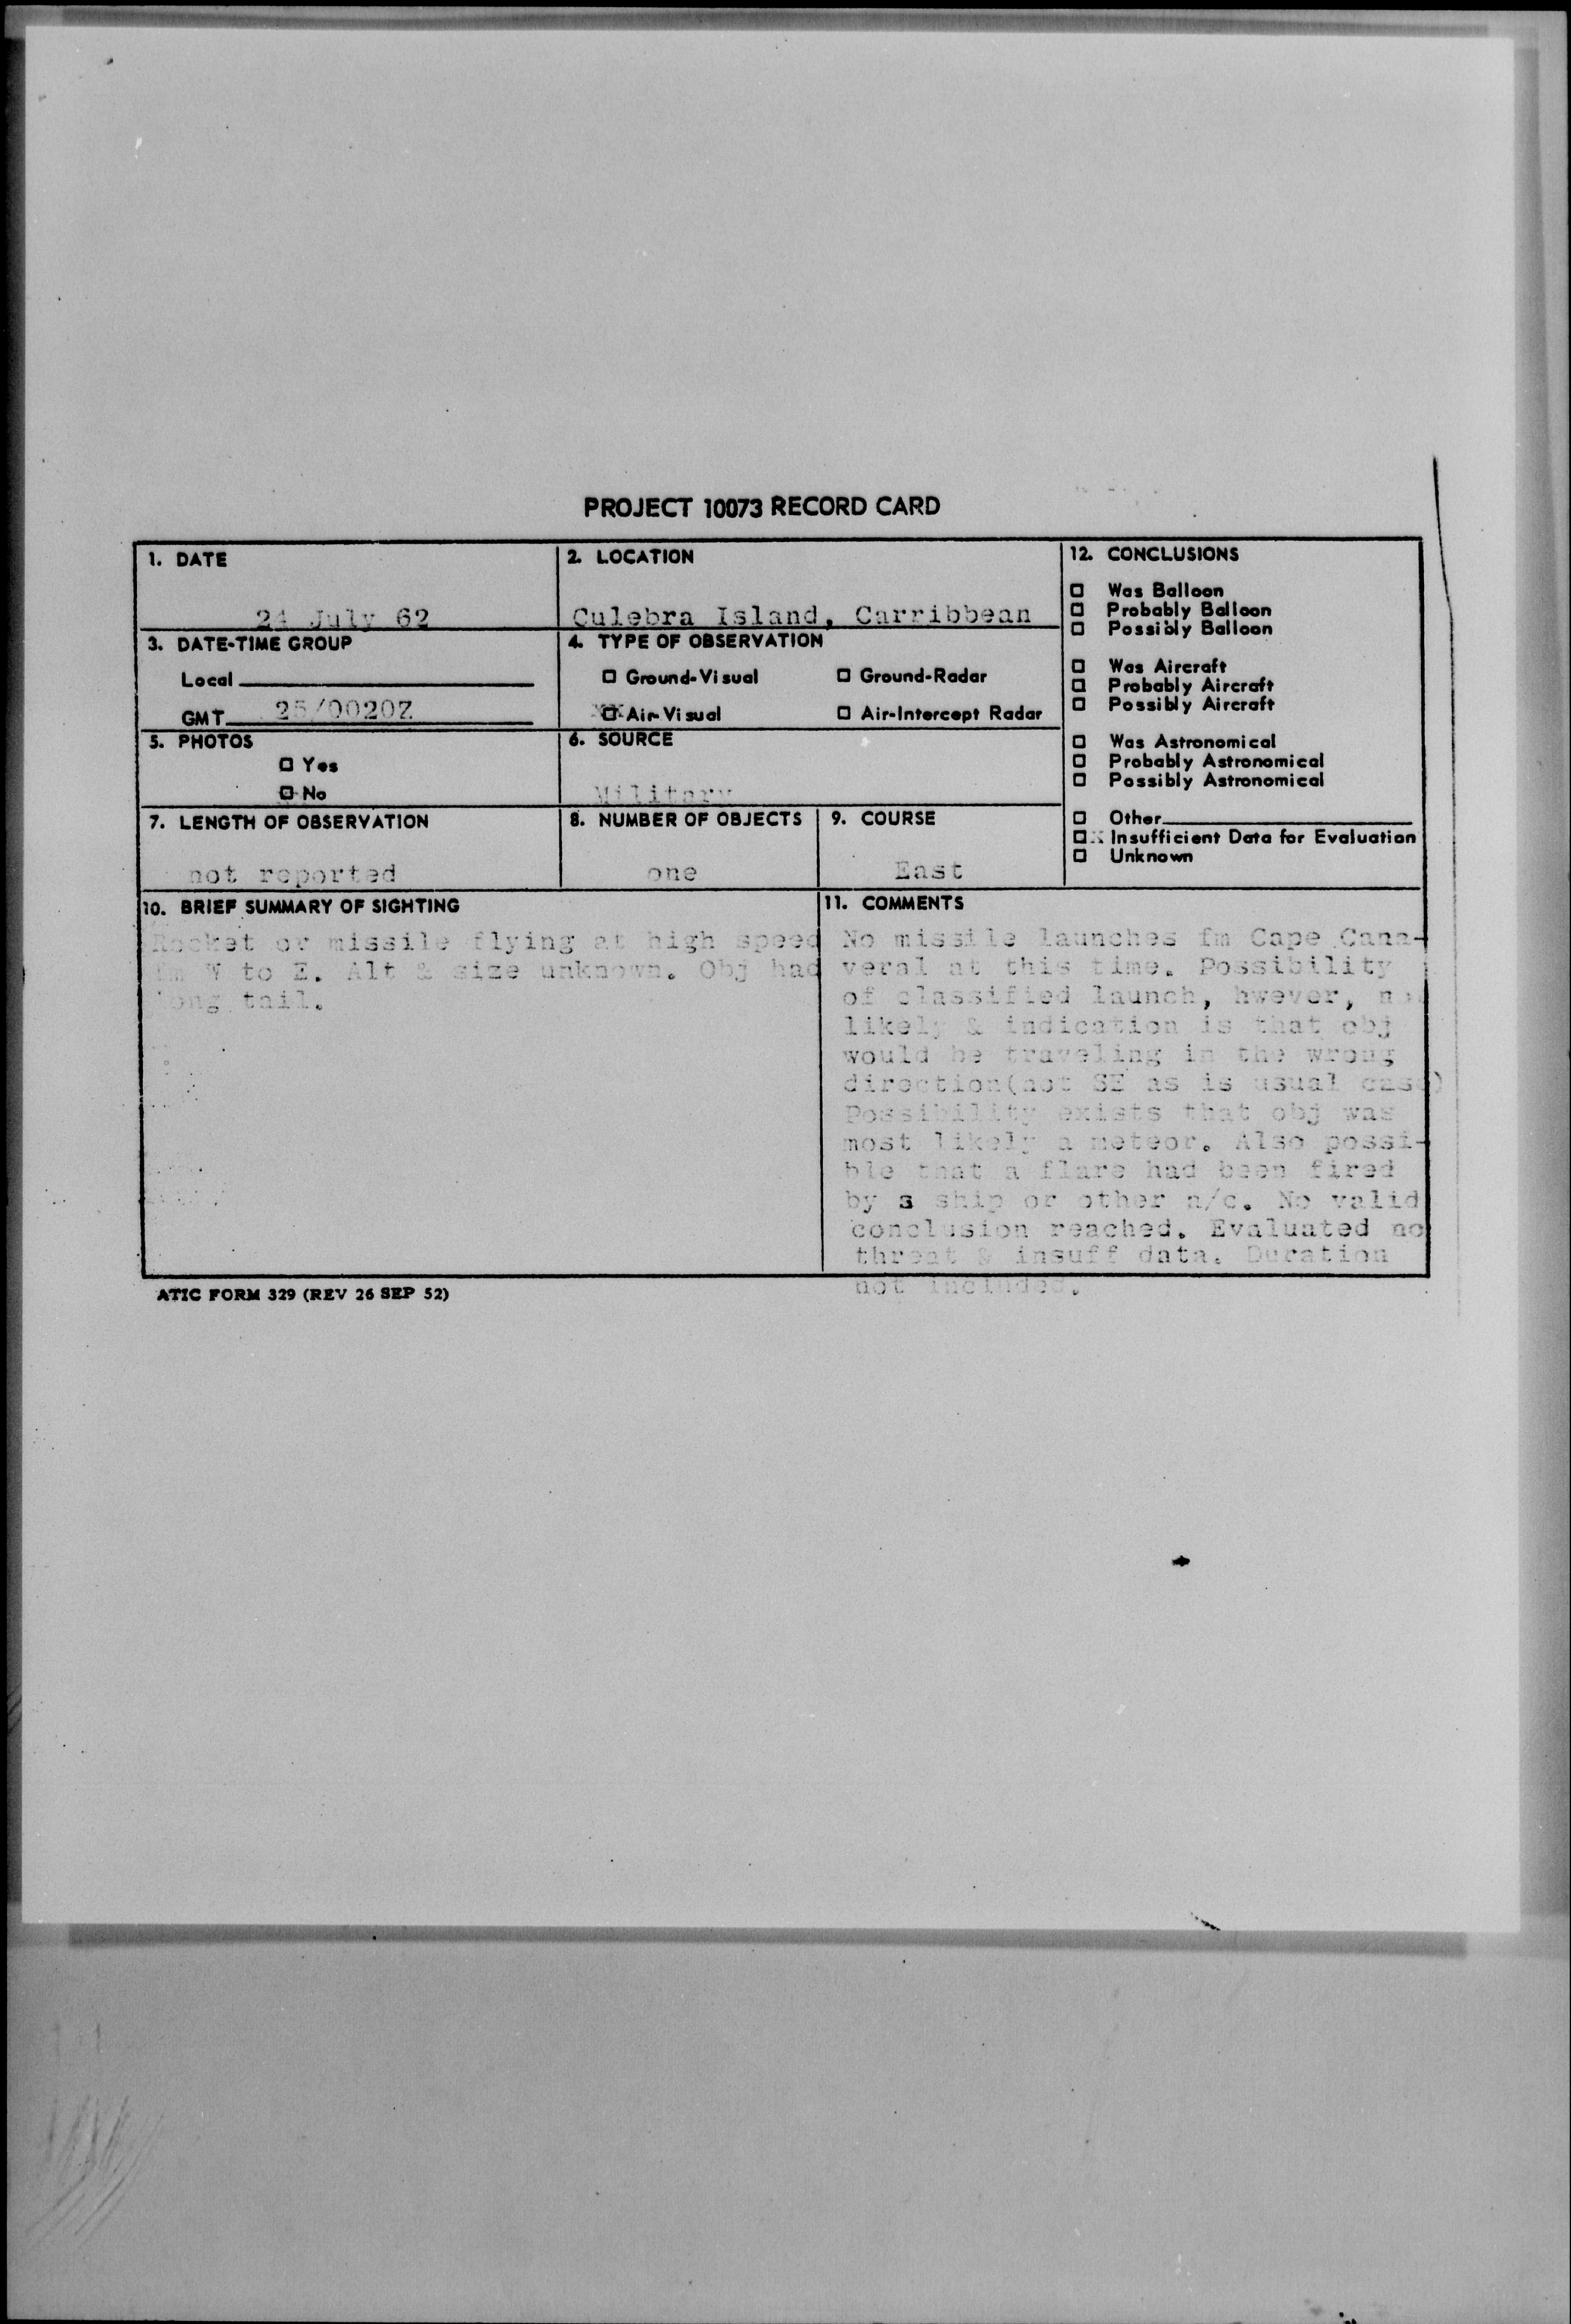 PROJECT 10073 RECORD CARD
1. DATE
24 July 62
2. LOCATION
Culebra Island, Carribbean
3. DATE-TIME GROUP
Local
GMT 25/0020Z
4. TYPE OF OBSERVATION
☐ Ground-Visual ☐ Ground-Radar
XX Air-Visual ☐ Air-Intercept Radar
5. PHOTOS
☐ Yes
☐ No
6. SOURCE
Military
7. LENGTH OF OBSERVATION
not reported
8. NUMBER OF OBJECTS
one
9. COURSE
East
10. BRIEF SUMMARY OF SIGHTING
Rocket or missile flying at high speed
fm W to E. Alt & size unknown. Obj had
long tail.
11. COMMENTS
No missile launches fm Cape Cana-
veral at this time. Possibility
of classified launch, hwever, not
likely & indication is that obj
would be traveling in the wrong
direction(not SE as is usual case)
Possibility exists that obj was
most likely a meteor. Also possi-
ble that a flare had been fired
by a ship or other a/c. No valid
conclusion reached. Evaluated no
threat & insuff data. Duration
not included.
12. CONCLUSIONS
☐ Was Balloon
☐ Probably Balloon
☐ Possibly Balloon
☐ Was Aircraft
☐ Probably Aircraft
☐ Possibly Aircraft
☐ Was Astronomical
☐ Probably Astronomical
☐ Possibly Astronomical
☐ Other
☐X Insufficient Data for Evaluation
☐ Unknown
ATIC FORM 329 (REV 26 SEP 52)